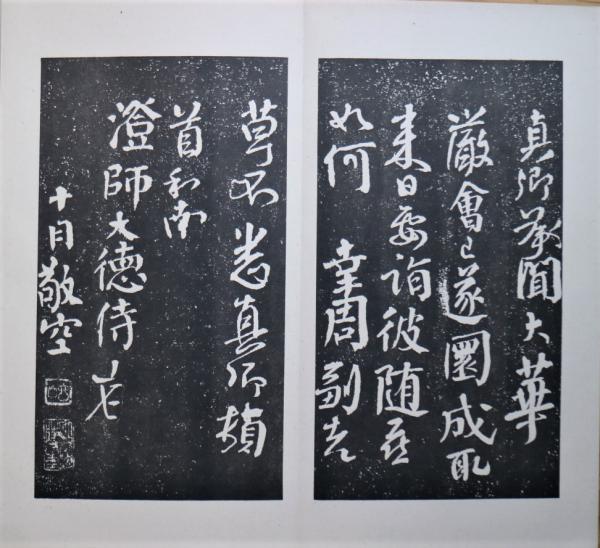 真卿承聞大華
嚴會已遂圓成取
来日要詣彼随喜
如何 幸周副老
草不悉真卿頓
首和南
澄師大德侍者
十月敬空